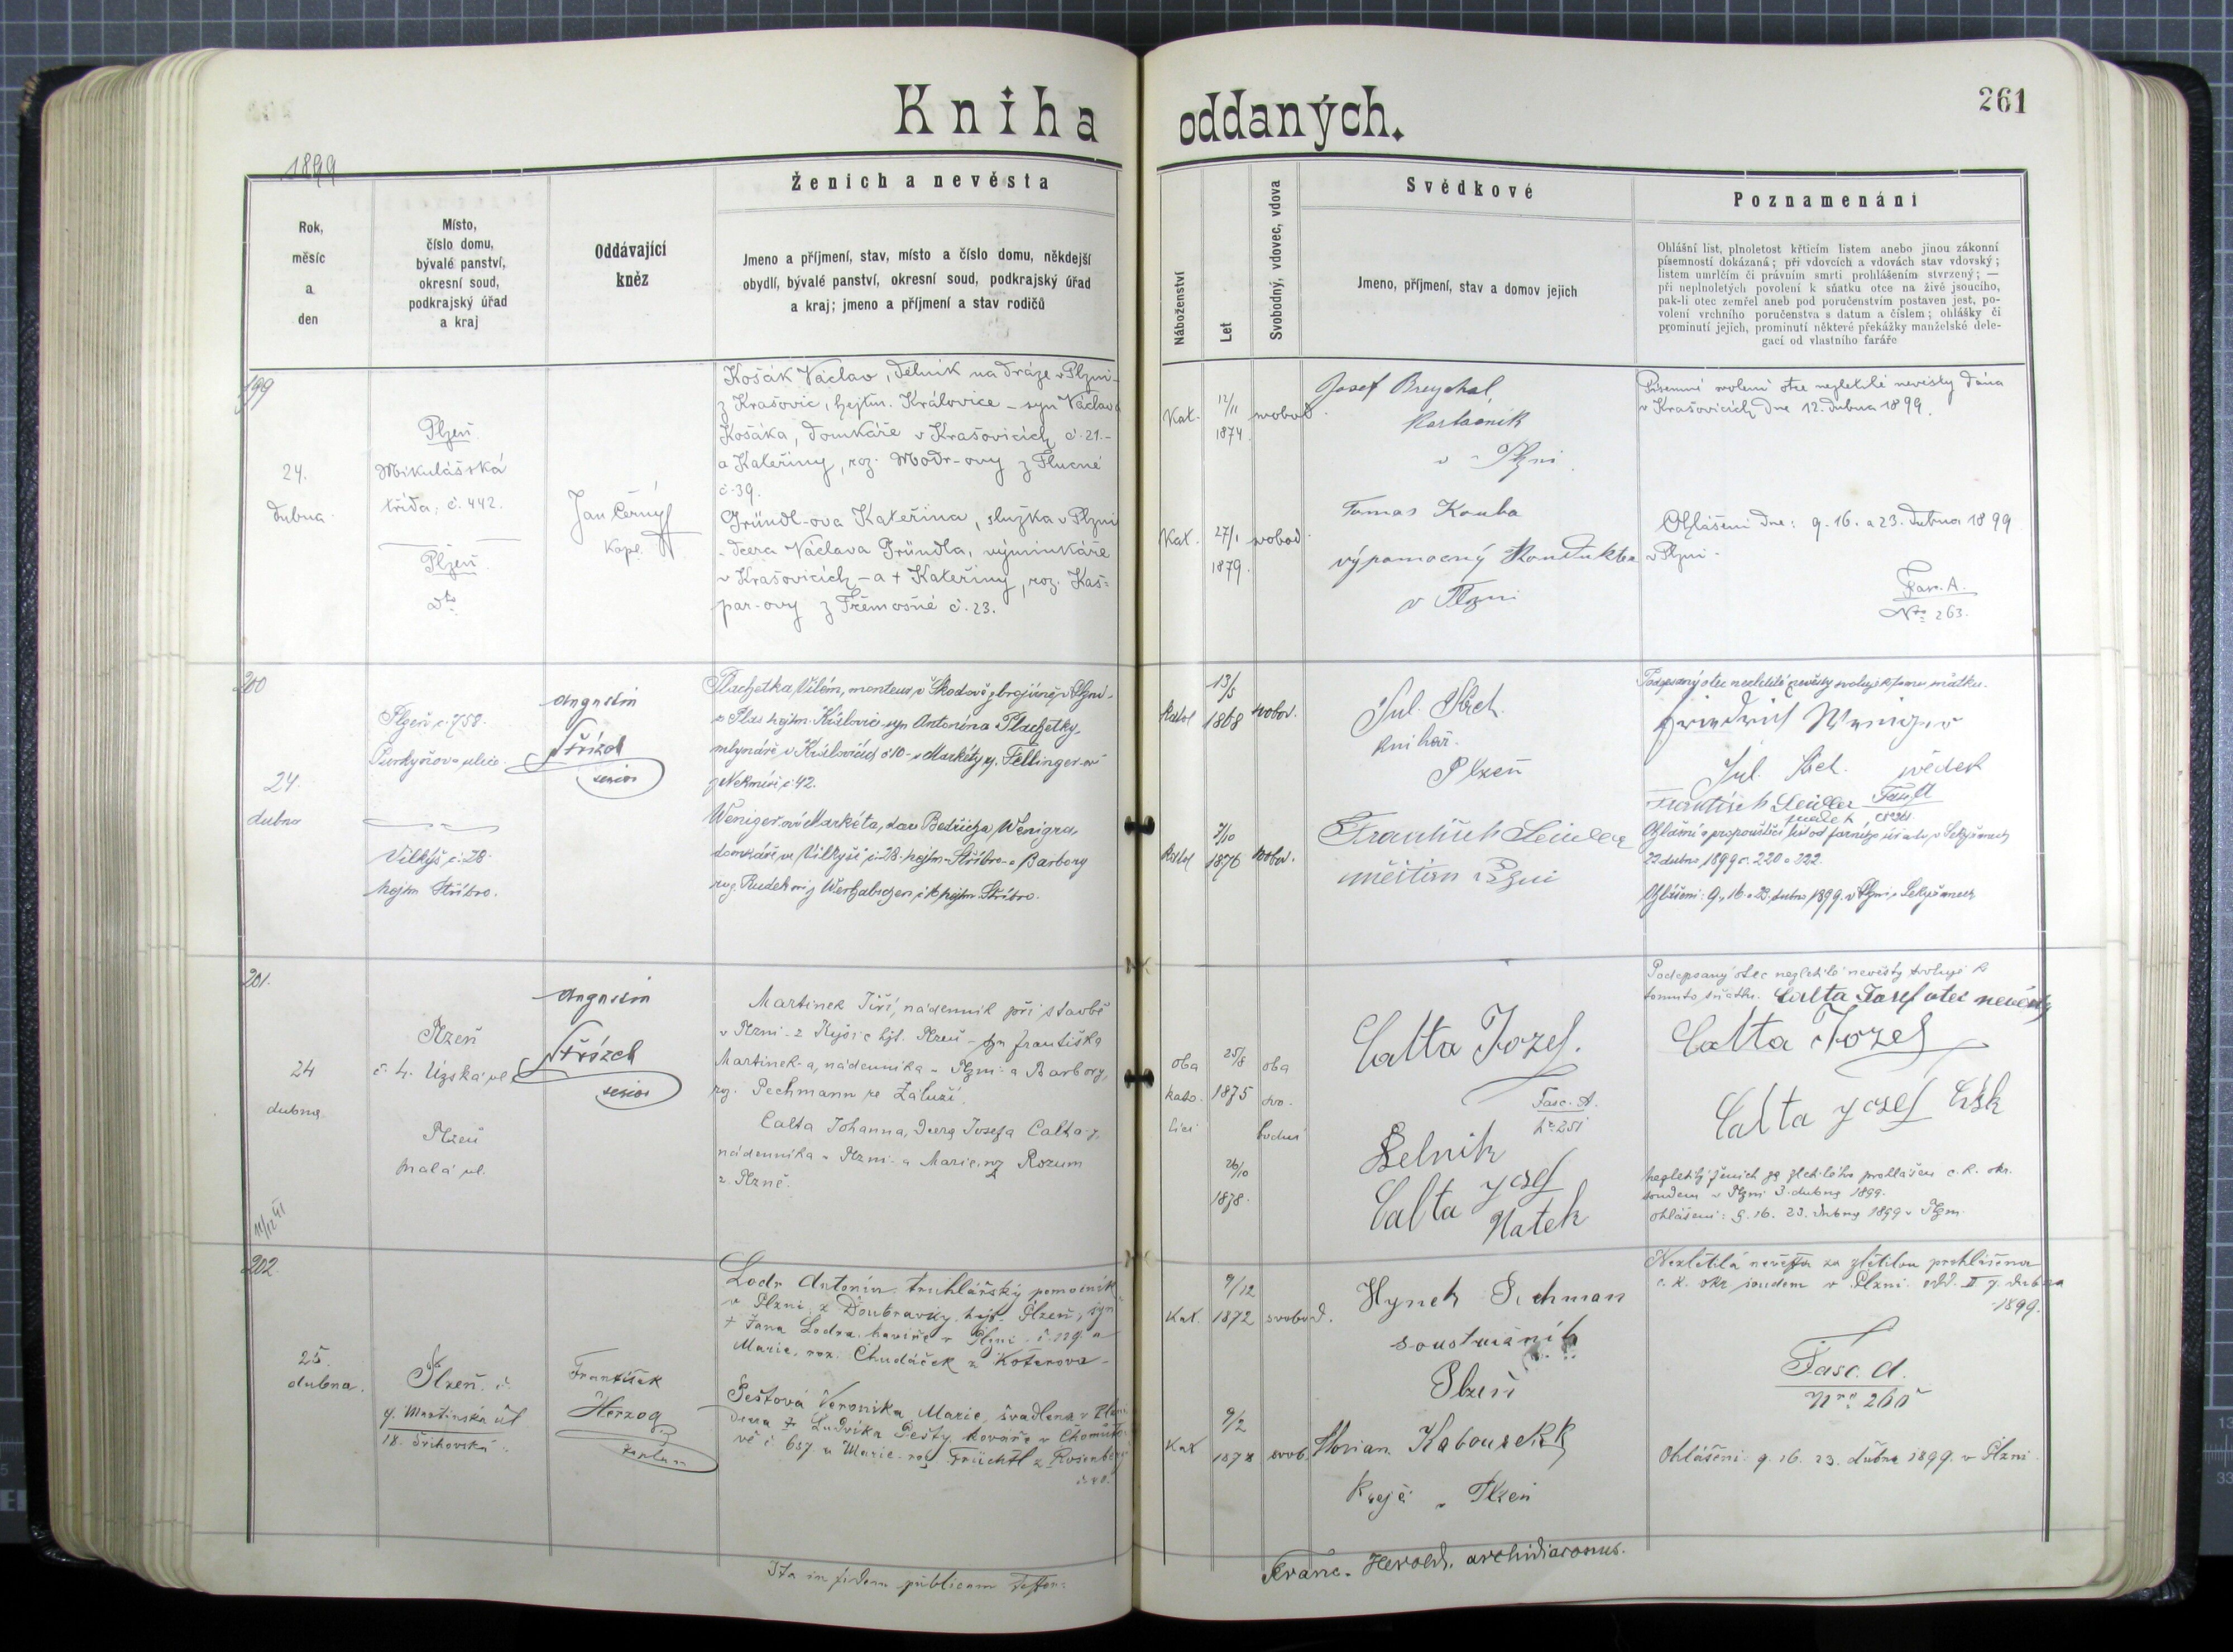 Kniha oddaných.
261
1899
Rok,
měsíc
a
den
Místo,
číslo domu,
bývalé panství,
okresní soud,
podkrajský úřad
a kraj
Oddávající
kněz
Ženich a nevěsta
Jmeno a příjmení, stav, místo a číslo domu, někdejší
obydlí, bývalé panství, okresní soud, podkrajský úřad
a kraj; jmeno a příjmení a stav rodičů
Náboženství
Let
Svobodný, vdovec, vdova
Svědkové
Jmeno, příjmení, stav a domov jejich
Poznamenání
Ohlášní list, plnoletost křticím listem anebo jinou zákonní
písemností dokázaná; při vdovcích a vdovách stav vdovský;
listem umrlčím či právním smrti prohlášením stvrzený; —
při neplnoletých povolení k sňatku otce na živě jsoucího,
pak-li otec zemřel aneb pod poručenstvím postaven jest, po-
volení vrchního poručenstva s datum a číslem; ohlášky či
prominutí jejich, prominutí některé překážky manželské dele-
gací od vlastního faráře
199
24.
dubna
Plzeň
Mikulášská
třída, č. 442.
Plzeň
dto
Jan Černý
kapl.
Košák Václav, dělník na dráze v Plzni
z Krašovic, hejtm. Královice – syn Václava
Košáka, domkáře v Krašovicích č. 21. –
a Kateřiny, roz. Modr-ovy z Hlucné
č. 39.
Gründl-ova Kateřina, služka v Plzni
- dcera Václava Gründla, výminkáře
v Krašovicích – a + Kateřiny, roz. Kaš=
par-ovy z Třemošné č. 23.
Kat.
12/11
1874.
svobod.
Kat.
27/1
1879.
svobod.
Josef Breychal
v Plzni
Tomas Kouba
výpomocný Kondukter
v Plzni
Písemné svolení otce nezletilé nevěsty dána
v Krašovicích dne 12. dubna 1899.
Ohlášeni dne: 9. 16. a 23. dubna 1899
v Plzni.
Fasc. A.
Nro 263.
200
24.
dubna
Plzeň č. 758.
Purkyňova ulice.
Vilkýš č. 28.
hejtm. Stříbro.
Augustin
Střízek
senior
Plachetka Vilém, monteur v Škodově zbrojírně v Plzni -
z Plas hejtm. Královic syn Antonína Plachetky,
mlynáře v Královicích č. 10 - a Markéty roz. Fellinger-ové
z Nekmíře č. 42.
Weniger-ová Markéta, dcera Bedřicha Wenigra,
domkáře ve Vilkýši č. 28. hejtm. Stříbro - a Barbory
roz. Rudek
hejtm. Stříbro.
katol
13/5
1868
svobod.
katol
7/10
1876
svobod.
Jul. Šlech
knihař.
Plzeň
František Seidler
v Plzni
Podepsaný otec nezletilé nevěsty svoluje k tomu sňatku.
Friedrich Weniger
Jul. svědek
František Seidler
svědek
Fasc. A
22 dubna 1899 č. 220 a 222.
Ohlášeni: 9., 16. a 23. dubna 1899. v Plzni a
201.
24
dubna
11/12 41
Plzeň
č. 4. Úzská ul.
Plzeň
Malá ul.
Augustin
Střízek
senior
Martinek Jiří, nádenník při stavbě
v Plzni - z Kyšic hjt. Plzeň - syn Františka
Martinek-a, nádenníka v Plzni a Barbory,
roz. Pechmann ze Záluží.
Calta Johanna, dcera Josefa Calta-y,
nádenníka v Plzni a Marie, roz Rozum
z Plzně.
oba
kato-
líci
25/8
1875
26/10
1878.
oba
svo-
bodní
Calta Jozef.
Fasc. A.
No 251
Delnik
Calta jozef
Natek
Podepsaný otec nezletilé nevěsty svoluje k
tomuto sňatku. Calta Josef otec nevěsty
Calta Jozef
Calta jozef
Nezletilý ženich za zletilého prohlášen c. k. okr.
soudem v Plzni 3. dubna 1899.
Ohlášeni: 9. 16. 23. dubna 1899 v Plzni.
202.
25.
dubna.
Plzeň. č.
4. Martinská ul.
18. Štihovská
František
Herzog
kaplan
Lodr Antonín, truhlářský pomocník
v Plzni, z Doubravky, hejt. Plzeň, syn
+ Jana Lodra, havíře v Plzni č. 229. a
Marie, roz. Chudáček z Koterova -
Peštová Veronika Marie, švadlena v Plzni
dcera + Ludvíka Pešty, kováře v Chomúto-
vě č. 657 a Marie roz. Früchtl z Rosenberg
Kat.
9/12
1872
svobod.
Kat
9/2
1878
svob.
Hynek
soustružník
Plzeň
Florian Kabourek
Krejčí v Plzni
Nezletilá nevěsta za zletilou prohlášena
c. k. okr. soudem v Plzni odd. II 7. dubna
1899.
Fasc. A.
Nro 260
Ohlášeni. 9. 16. 23. dubna 1899. v Plzni
Ita in fidem publicam testor:
Franc. Herold, archidiaconus.